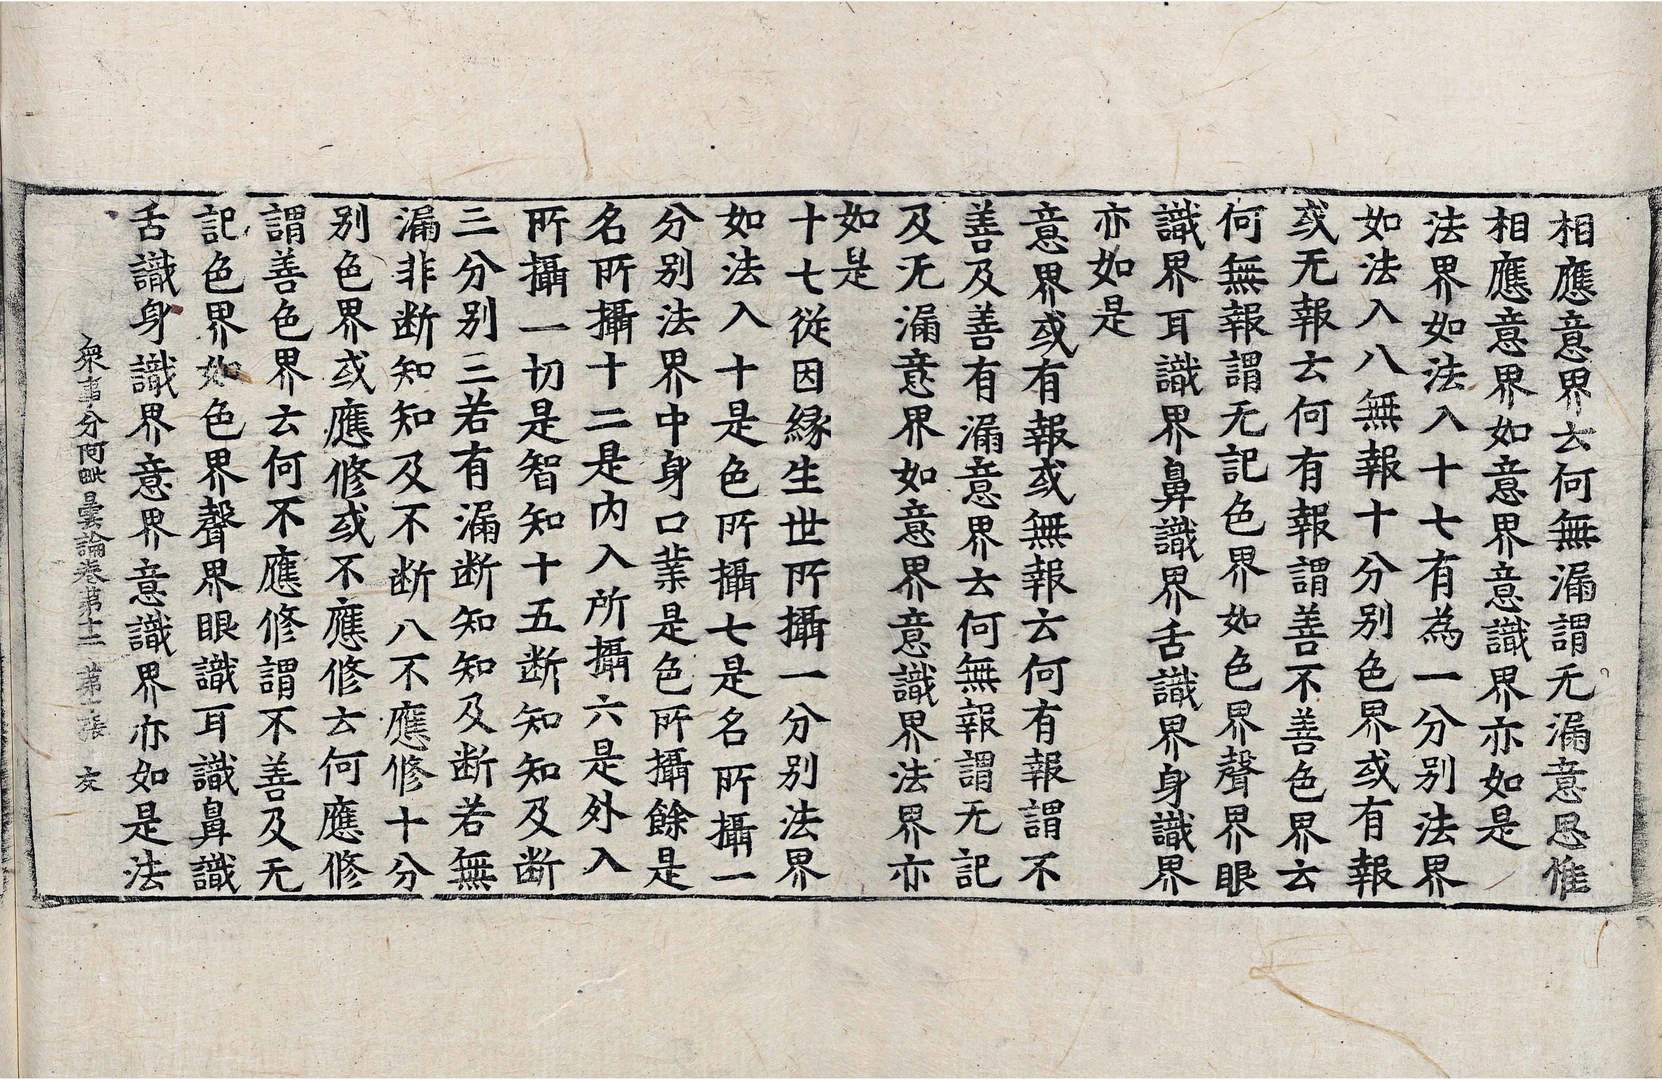 相應意界云何無漏謂无漏意思惟
相應意界如意界意識界亦如是
法界如法入十七有為一分別法界
如法入八無報十分別色界或有報
或无報云何有報謂善不善色界云
何無報謂无記色界如色界聲界眼
識界耳識界鼻識界舌識界身識界
亦如是
意界或有報或無報云何有報謂不
善及善有漏意界云何無報謂无記
及无漏意界如意界意識界法界亦
如是
十七從因緣生世所攝一分別法界
如法入十是色所攝七是名所攝一
分別法界中身口業是色所攝餘是
名所攝十二是內入所攝六是外入
所攝一切是智知十五断知知及断
三分別三若有漏断知知及断若無
漏非断知知及不断八不應修十分
別色界或應修或不應修云何應修
謂善色界云何不應修謂不善及无
記色界如色界聲界眼識耳識鼻識
舌識身識界意界意識界亦如是法
衆事分阿毗曇論卷第十二 第二張 友